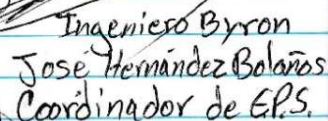 Ingeniero Byron
José Hernández Bolaños
Coordinador de E.P.S.